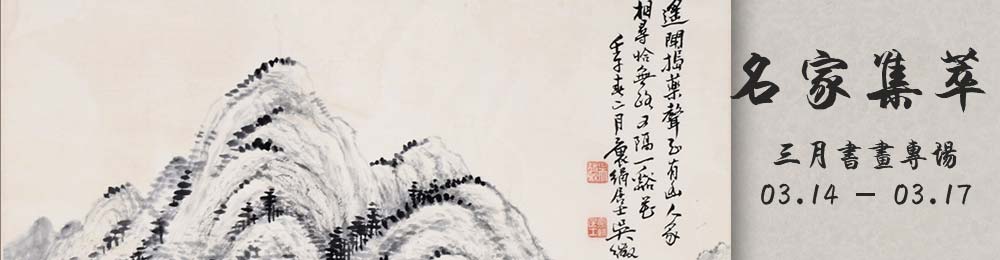 遙聞搗藥聲知有山人家
相尋恰無路又隔一谿花
壬午春二月襄綺居士吳徵
名家集萃
三月書畫專場
03.14 — 03.17